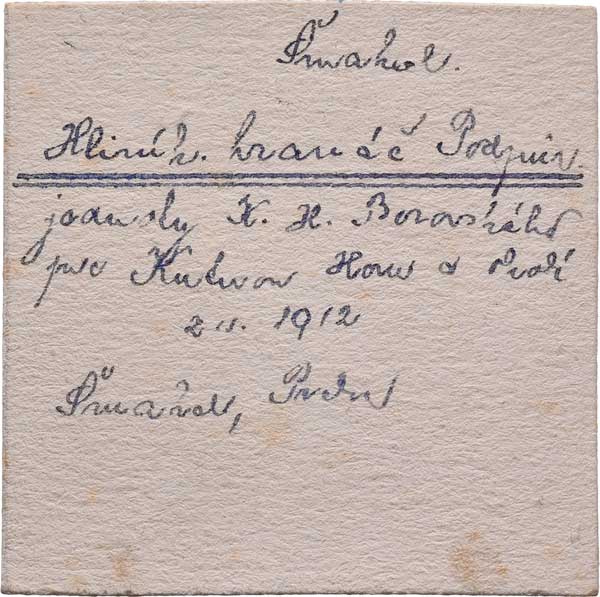 Šmakal.
Hliník. hranáč Podpůr.
jednoty K. H. Borovského
pro Kutnou Horu a okolí
z r. 1912
Šmakal, Praha